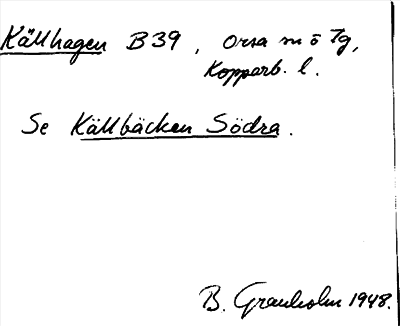 Källhagen B39, Orsa m ö Tg,
Kopparb. l.
Se Källbäcken Södra.
B. Granholm 1948.